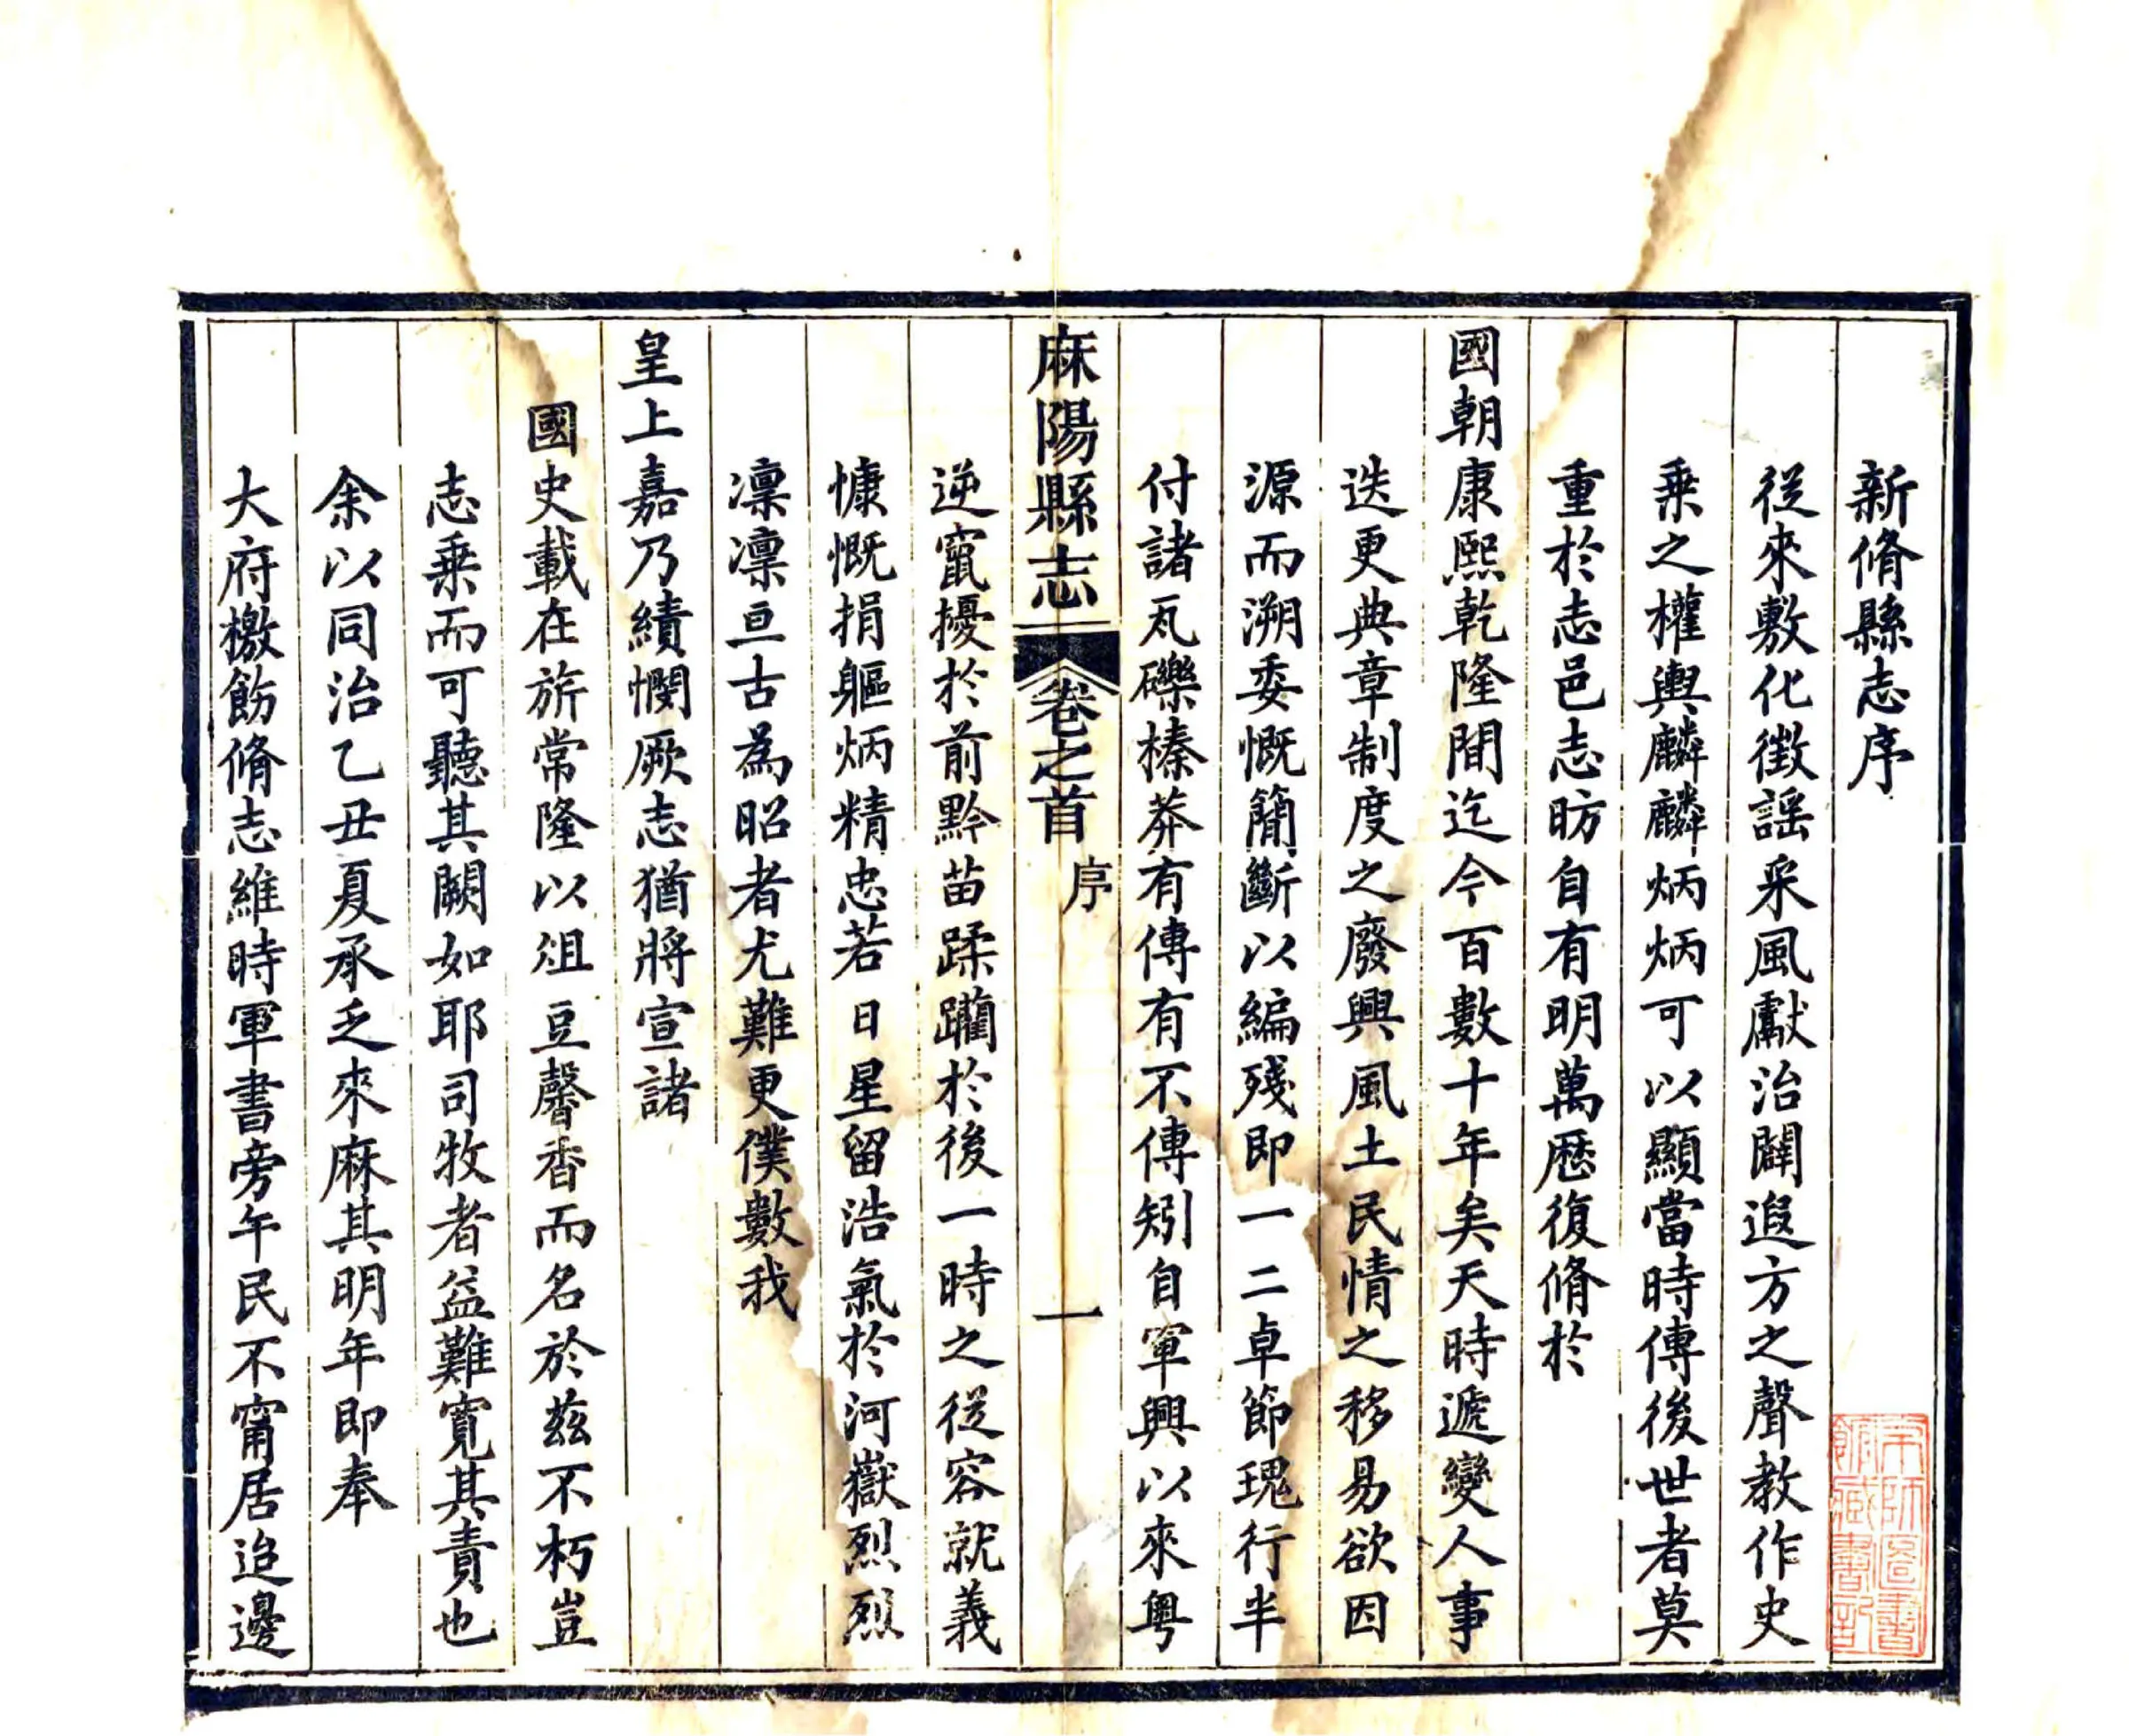 新脩縣志序
從來敷化徵謡采風獻治闢遐方之聲教作史
乘之權輿麟麟炳炳可以顯當時傳後世者莫
重於志邑志昉自有明萬厯復脩於
國朝康熙乾隆間迄今百數十年矣天時遞變人事
迭更典章制度之廢興風土民情之移易欲因
源而溯委慨簡斷以編殘即一二卓節瑰行半
付諸瓦礫榛莽有傳有不傳矧自軍興以來粤
麻陽縣志
卷之首
序
一
逆竄擾於前黔苗蹂躪於後一時之從容就義
慷慨捐軀炳精忠若日星留浩氣於河嶽烈烈
凛凛亘古為昭者尤難更僕數我
皇上嘉乃績憫厥志猶將宣諸
國史載在旂常隆以俎豆馨香而名於茲不朽豈
志乘而可聽其闕如耶司牧者益難寬其責也
余以同治乙丑夏承乏來麻其明年即奉
大府檄飭脩志維時軍書旁午民不甯居迨邊